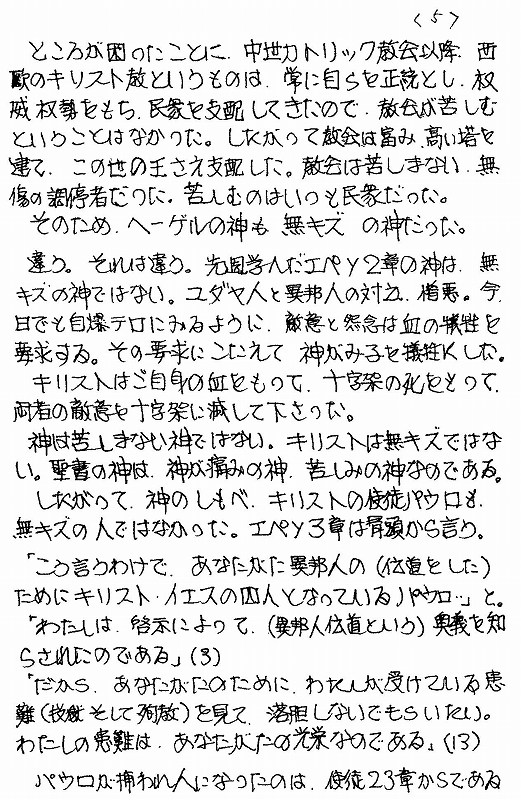 (5)
ところが困ったことに、中世カトリック教会以降、西
欧のキリスト教というものは、常に自らを正統とし、権
威権勢をもち、民衆を支配してきたので、教会が苦しむ
ということはなかった。したがって教会は富み、高い塔を
建て、この世の王さえ支配した。教会は苦しまない、無
傷の調停者だった。苦しむのはいつも民衆だった。
そのため、ヘーゲルの神も 無キズ の神だった。
違う。それは違う。先週学んだエペソ2章の神は、無
キズの神ではない。ユダヤ人と異邦人の対立、憎悪。今
日でも自爆テロにみるように、敵意と怨念は血の犠牲を
要求する。その要求にこたえて 神がみ子を犠牲にした。
キリストはご自身の血をもって、十字架の死をとって、
両者の敵意を十字架に滅して下さった。
神は苦しまない神ではない。キリストは無キズではな
い。聖書の神は、神が痛みの神、苦しみの神なのである。
したがって、神のしもべ、キリストの使徒パウロも、
無キズの人ではなかった。エペソ3章は冒頭から言う。
「こう言うわけで、あなたがた異邦人の (伝道をした)
ためにキリスト・イエスの囚人となっているパウロ‥」と。
「わたしは、啓示によって、(異邦人伝道という) 奥義を知
らされたのである」(3)
「だから、あなたがたのために、わたしが受けている患
難 (投獄そして殉教) を見て、落胆しないでもらいたい。
わたしの患難は、あなたがたの光栄なのである」(13)
パウロが捕われ人になったのは、使徒23章からである